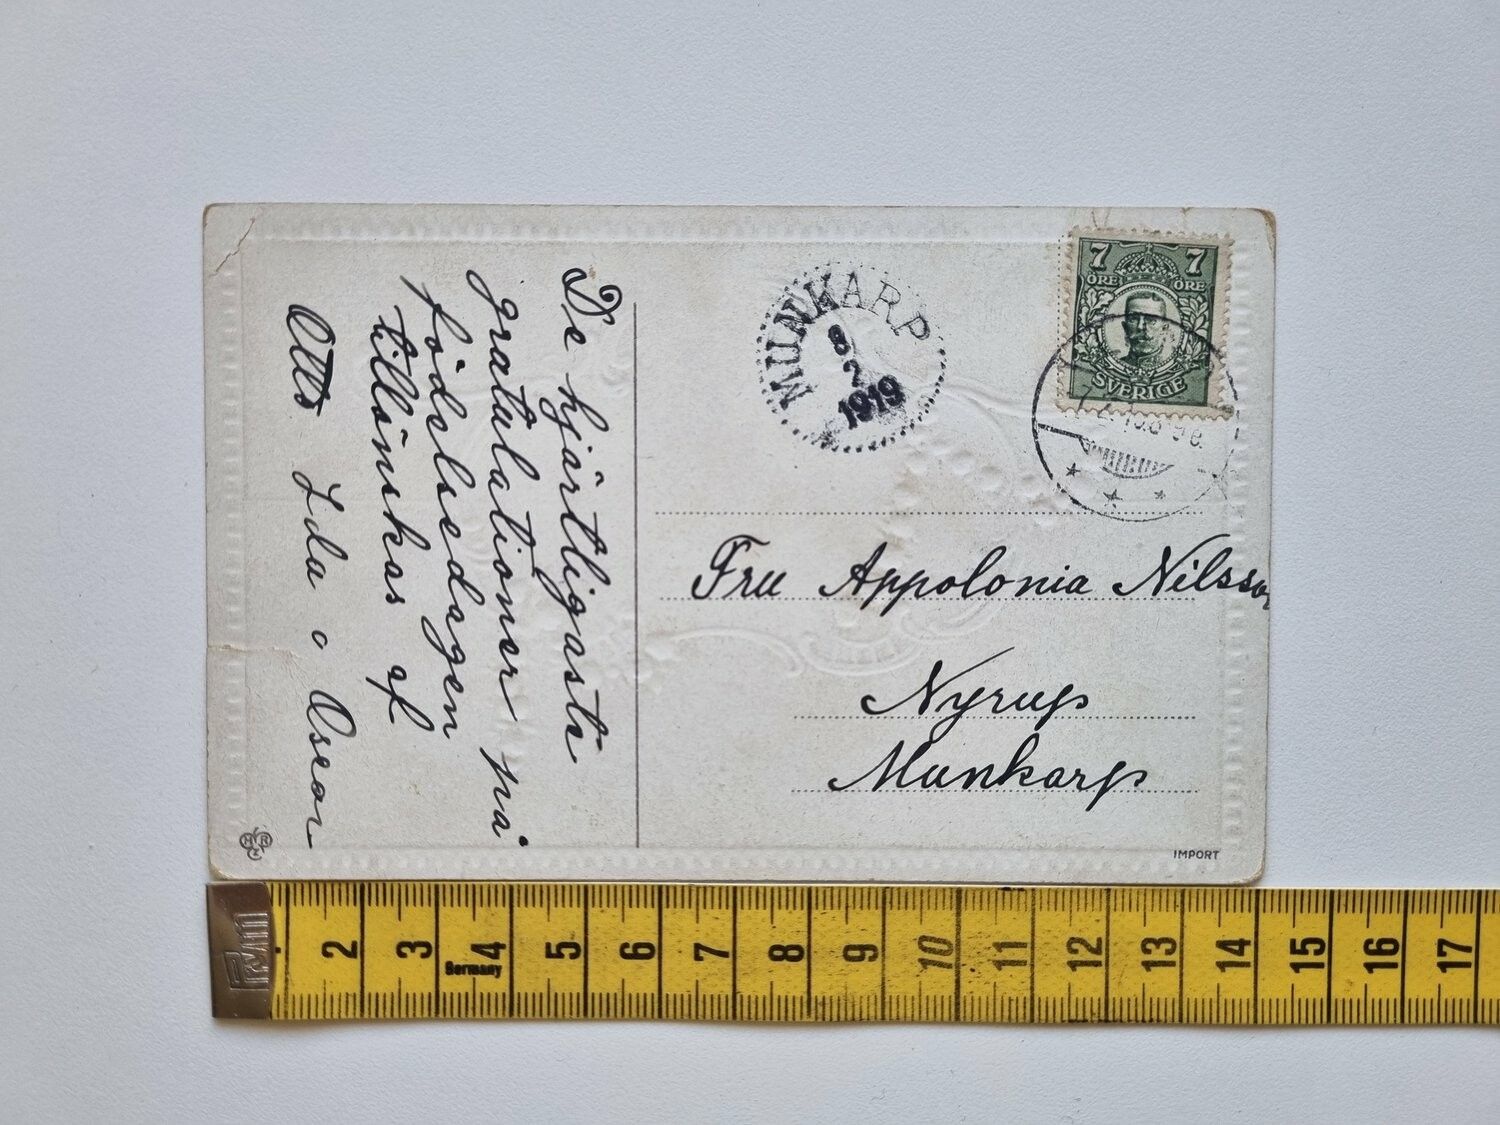 De hjärtligaste
gratulationer på
födelsedagen
tillönskas af
Otto Ida o Oscar
MUNKARP
8
2
1919
7 7
ÖRE ÖRE
SVERIGE
Fru Appolonia Nilsson
Nyrup
Munkarp
IMPORT
2 3 4 5 6 7 8 9 10 11 12 13 14 15 16 17
Germany